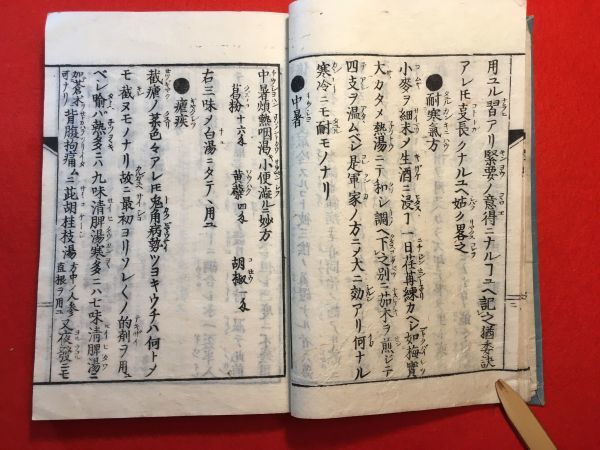 用ユル習ヒアリ緊要ノ意得ニナルヿユヘ記之猶委訣
アレ𪜈支長クナルユヘ姑ク畧之
●耐寒氣方
小麥ヲ細末ノ生酒ニ浸ス一日荏苒練カヘシ如梅實
大カタメ熱湯ニテ和シ調ヘ下之別ニ茄木ヲ煎シテ
四支ヲ温ムベシ是軍家ノ方ナラ大ニ効アリ何ナル
寒冷ニモ耐モノナリ
●中暑
中暑煩熱咽渇小便澁ル妙方
葛粉十六匁 黄蘗四匁 胡椒一匁
右三味ノ白湯ニタテヽ用ユ
●瘧疾
截瘧ノ薬色々アレ𪜈兎角病勢ツヨキウチハ何トメ
モ截ヌモノナリ故ニ最初ヨリソレ〱ノ的剤ヲ用ユ
ベシ喩ハ熱多ニハ九味清脾湯寒多ニハ七味清脾湯ニ
加蒼朮 背腹拘痛ムニ茈胡桂枝湯 方中ノ人参 又夜發ニモ
可ナリ 直根ヲ用ユ